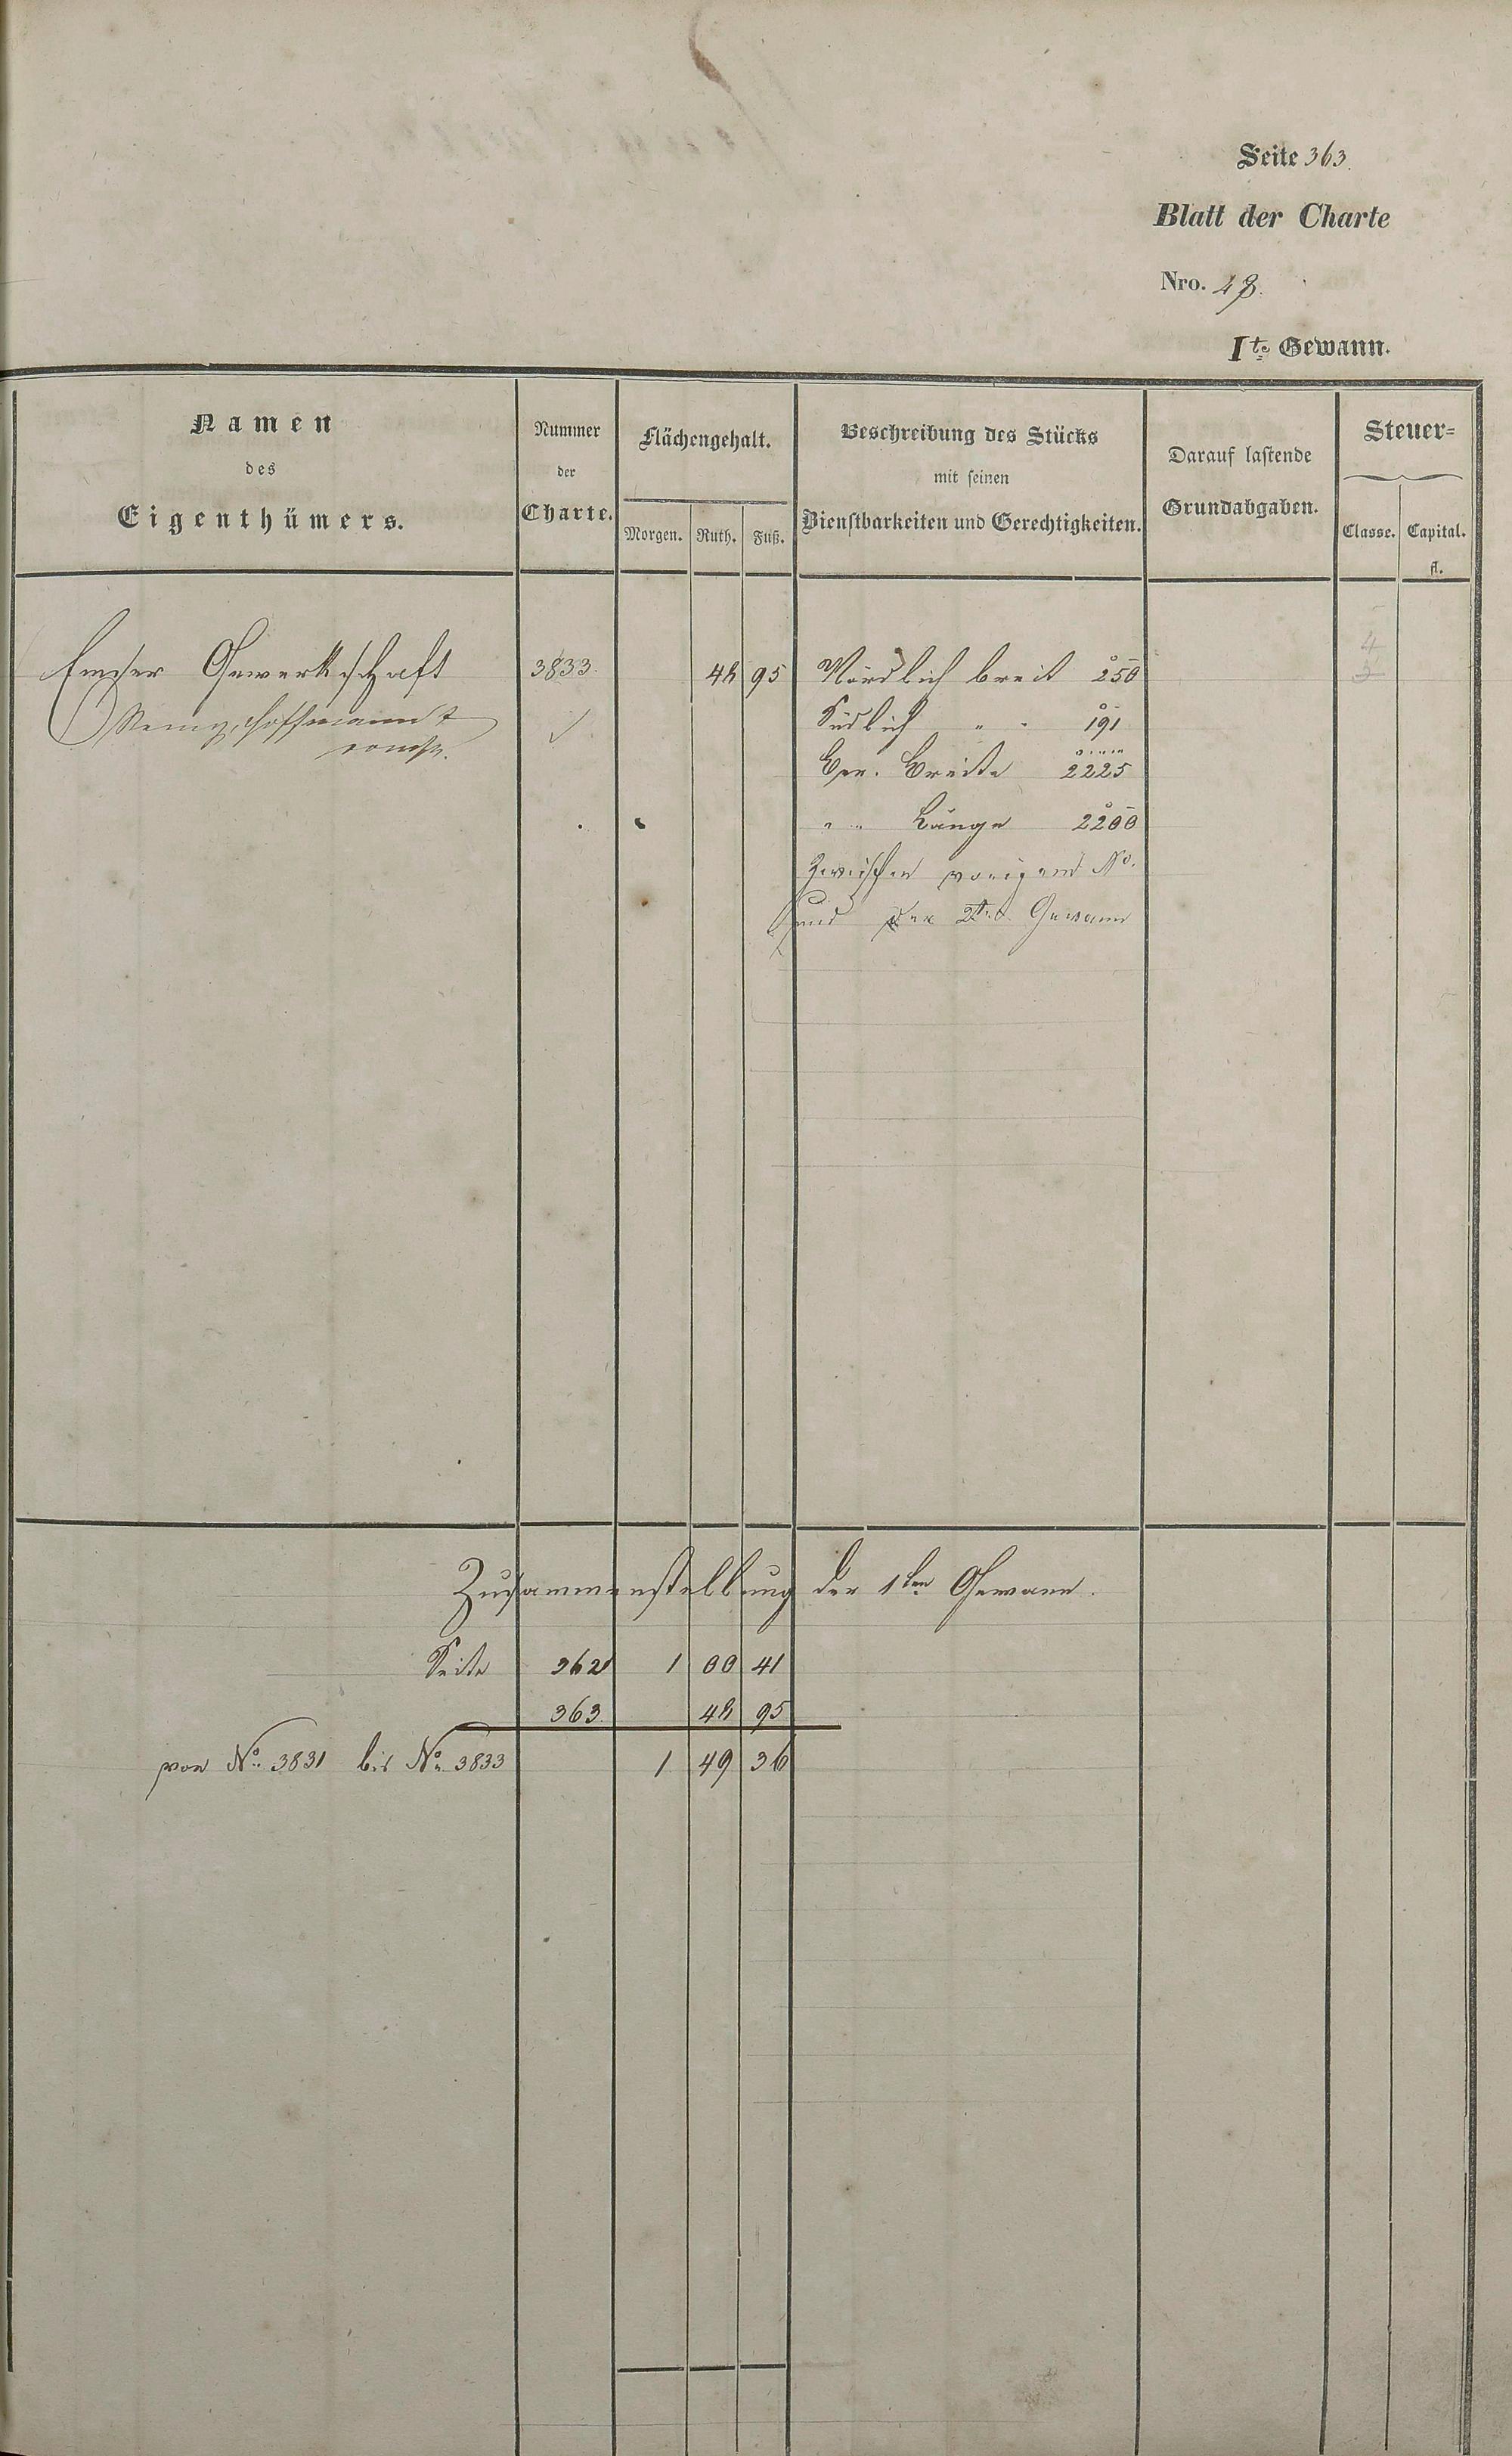 Seite 363.
Blatt der Charte
Nro. 48.
Ite Gewann.
Namen
des
Eigenthümers.
Nummer
der
Charte.
Flächengehalt.
Morgen. Ruth. Fuß.
Beschreibung des Stücks
mit seinen
Dienstbarkeiten und Gerechtigkeiten.
Darauf lastende
Grundabgaben.
Steuer=
Classe. Capital.
fl.
Emser Gewerkschaft 3833. 48 95 Nördlich breit 250
Südlich " " 191
Ber. Breite 2225
" " Länge 2200
Zwischen voriger No.
und der 2ten Gewann
4
5
Zusammenstellung der 1ten Gewann.
Seite 362 1 00 41
363. 48 95
von No. 3831 bis No. 3833 1 49 36